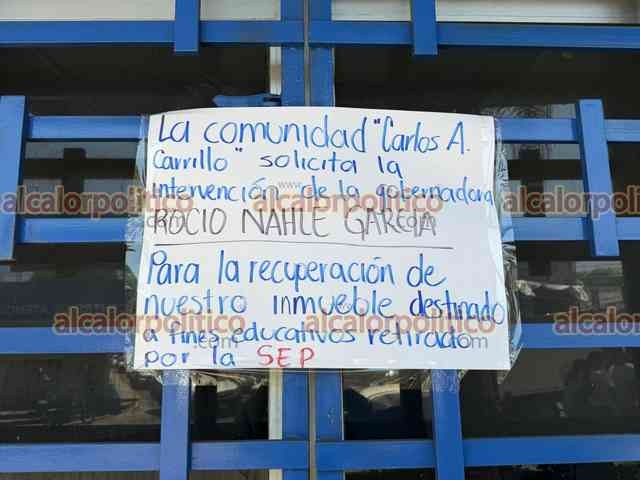 La comunidad "Carlos A.
Carrillo" solicita la
Intervención de la gobernadora
ROCIO NAHLE GARCIA
Para la recuperación de
nuestro inmueble destinado
a fines educativos retirado
por la SEP
alcalorpolitico
www.
alcalorpolitico
alcalorpolitico
alcalorpolitico
.com
alcalorpolitico
.com
alcalorpolitico